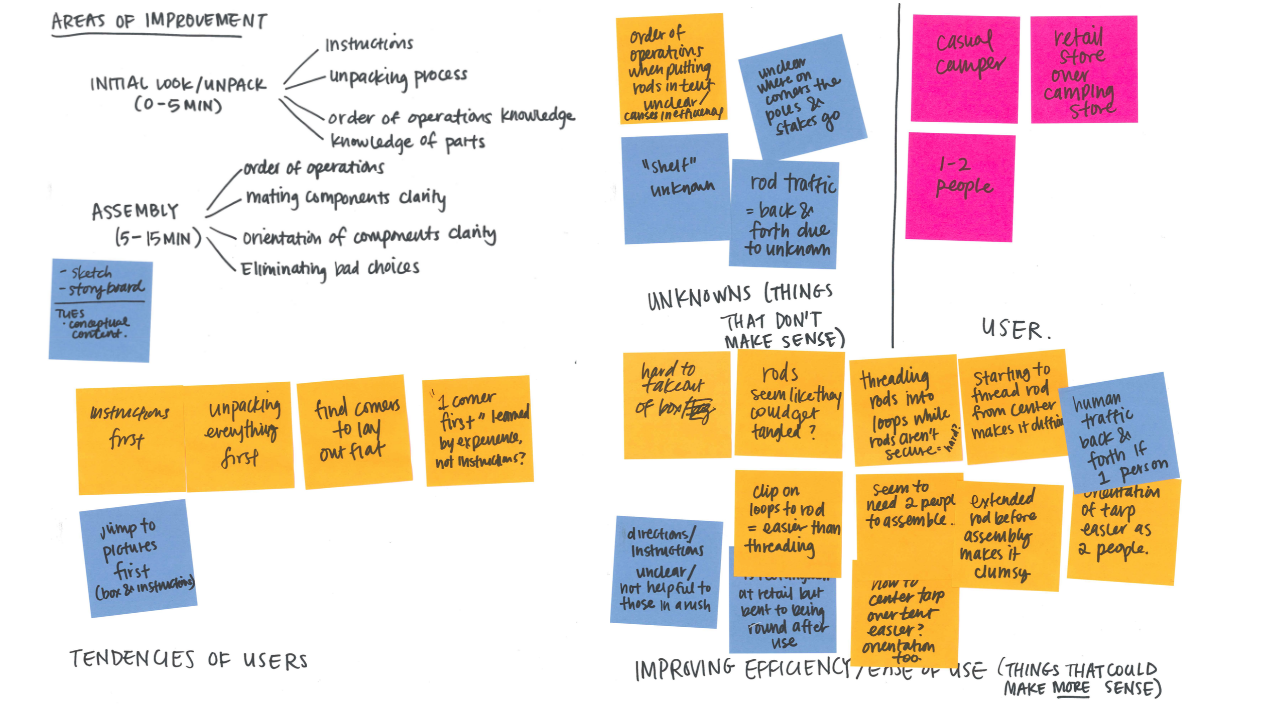 AREAS OF IMPROVEMENT
INITIAL LOOK/UNPACK
(0-5 MIN)
Instructions
unpacking process
order of operations knowledge
knowledge of parts
ASSEMBLY
(5-15MIN)
order of operations
mating components clarity
orientation of components clarity
Eliminating bad choices
- sketch
- storyboard
TUES
· conceptual
content.
instructions
first
unpacking
everything
first
find corners
to lay
out flat
"1 corner
first" learned
by experience,
not instructions?
jump to
pictures
first
(box & instructions)
TENDENCIES OF USERS
order of
operations
when putting
rods in tent
unclear/
causes inefficiency
unclear
where on
corners the
poles &
stakes go
"shelf"
unknown
rod traffic
= back &
forth due
to unknown
UNKNOWNS (THINGS
THAT DON'T
MAKE SENSE)
casual
camper
retail
store
over
camping
store
1-2
people
USER.
hard to
takeout
of box/
rods
seem like they
could get
tangled?
threading
rods into
loops while
rods aren't
secure = hard?
starting to
thread rod
from center
makes it
human
traffic
back &
forth if
1 person
directions/
instructions
unclear/
not helpful to
those in a rush
clip on
loops to rod
= easier than
threading
at retail but
bent to being
round after
use
seem to
need 2 people
to assemble..
how to
center tarp
over tent
easier?
orientation
too.
extended
rod before
assembly
makes it
clumsy
orientation
of tarp
easier as
2 people.
IMPROVING EFFICIENCY/EASE OF USE (THINGS THAT COULD
MAKE MORE SENSE)